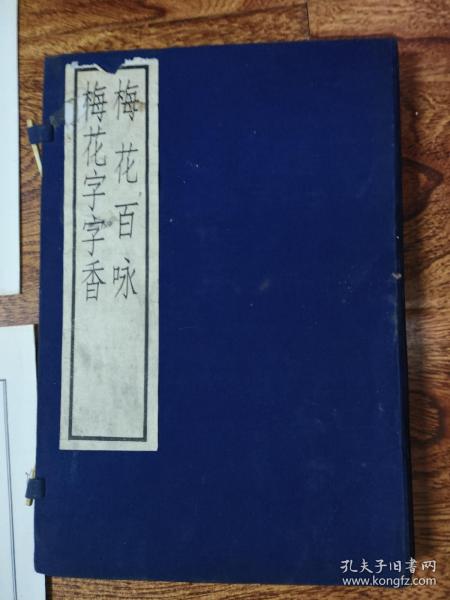 梅花百咏
梅花字字香
孔夫子旧书网
www.kongfz.com